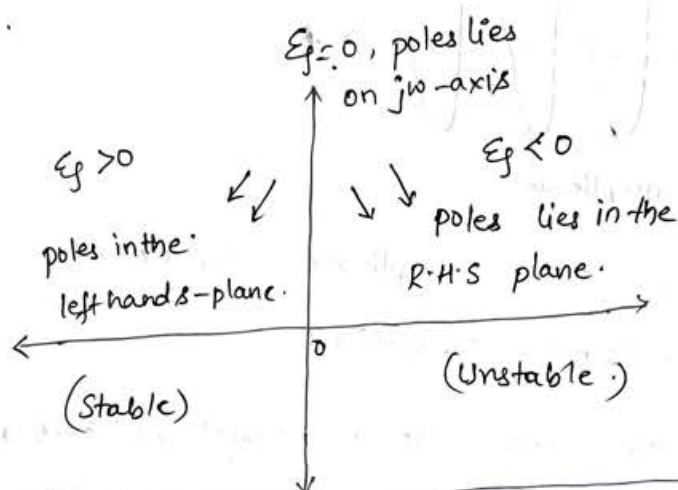 ξ=0, poles lies
on jω-axis
ξ>0
ξ<0
poles in the
left hand s-plane.
poles lies in the
R.H.S plane.
0
(Stable)
(Unstable.)